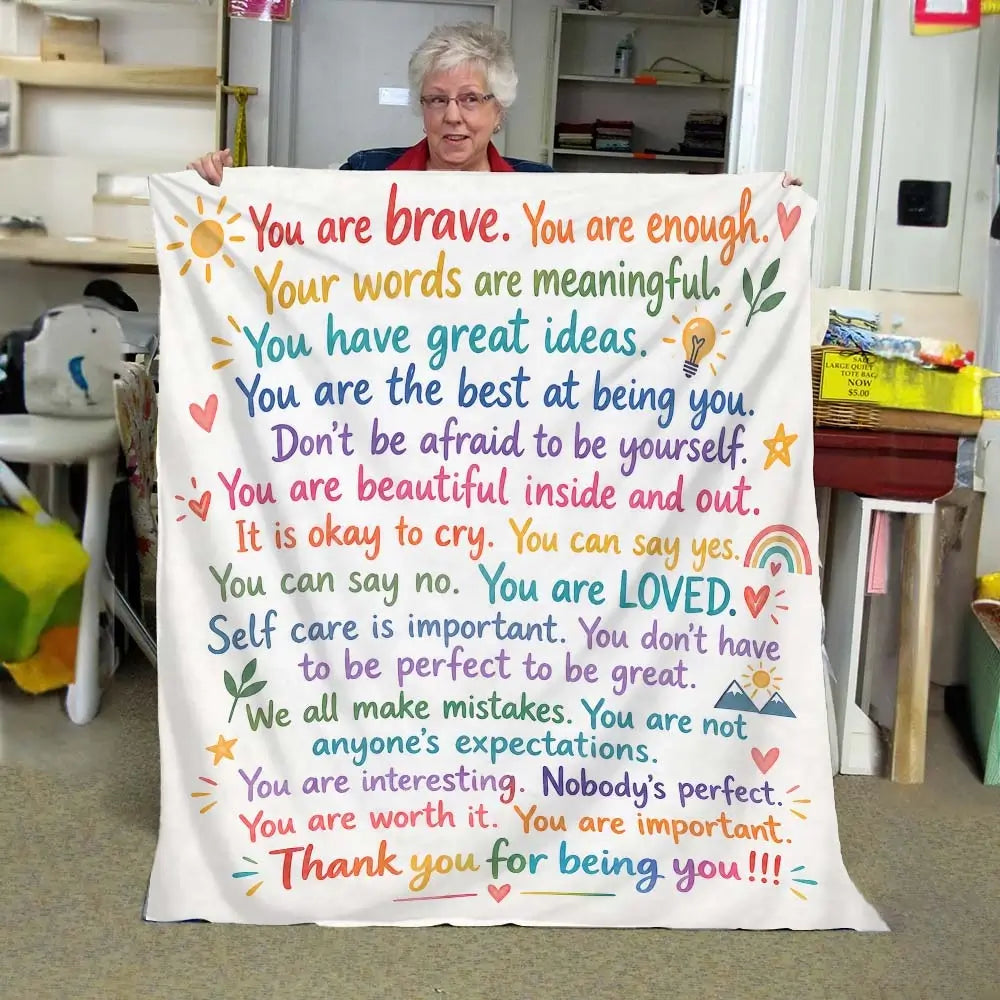 You are brave. You are enough.
Your words are meaningful.
You have great ideas.
You are the best at being you.
Don't be afraid to be yourself.
You are beautiful inside and out.
It is okay to cry. You can say yes.
You can say no. You are LOVED.
Self care is important. You don't have
to be perfect to be great.
We all make mistakes. You are not
anyone's expectations.
You are interesting. Nobody's perfect.
You are worth it. You are important.
Thank you for being you!!!
SALE
LARGE QUILT
TOTE BAG
NOW
$5.00